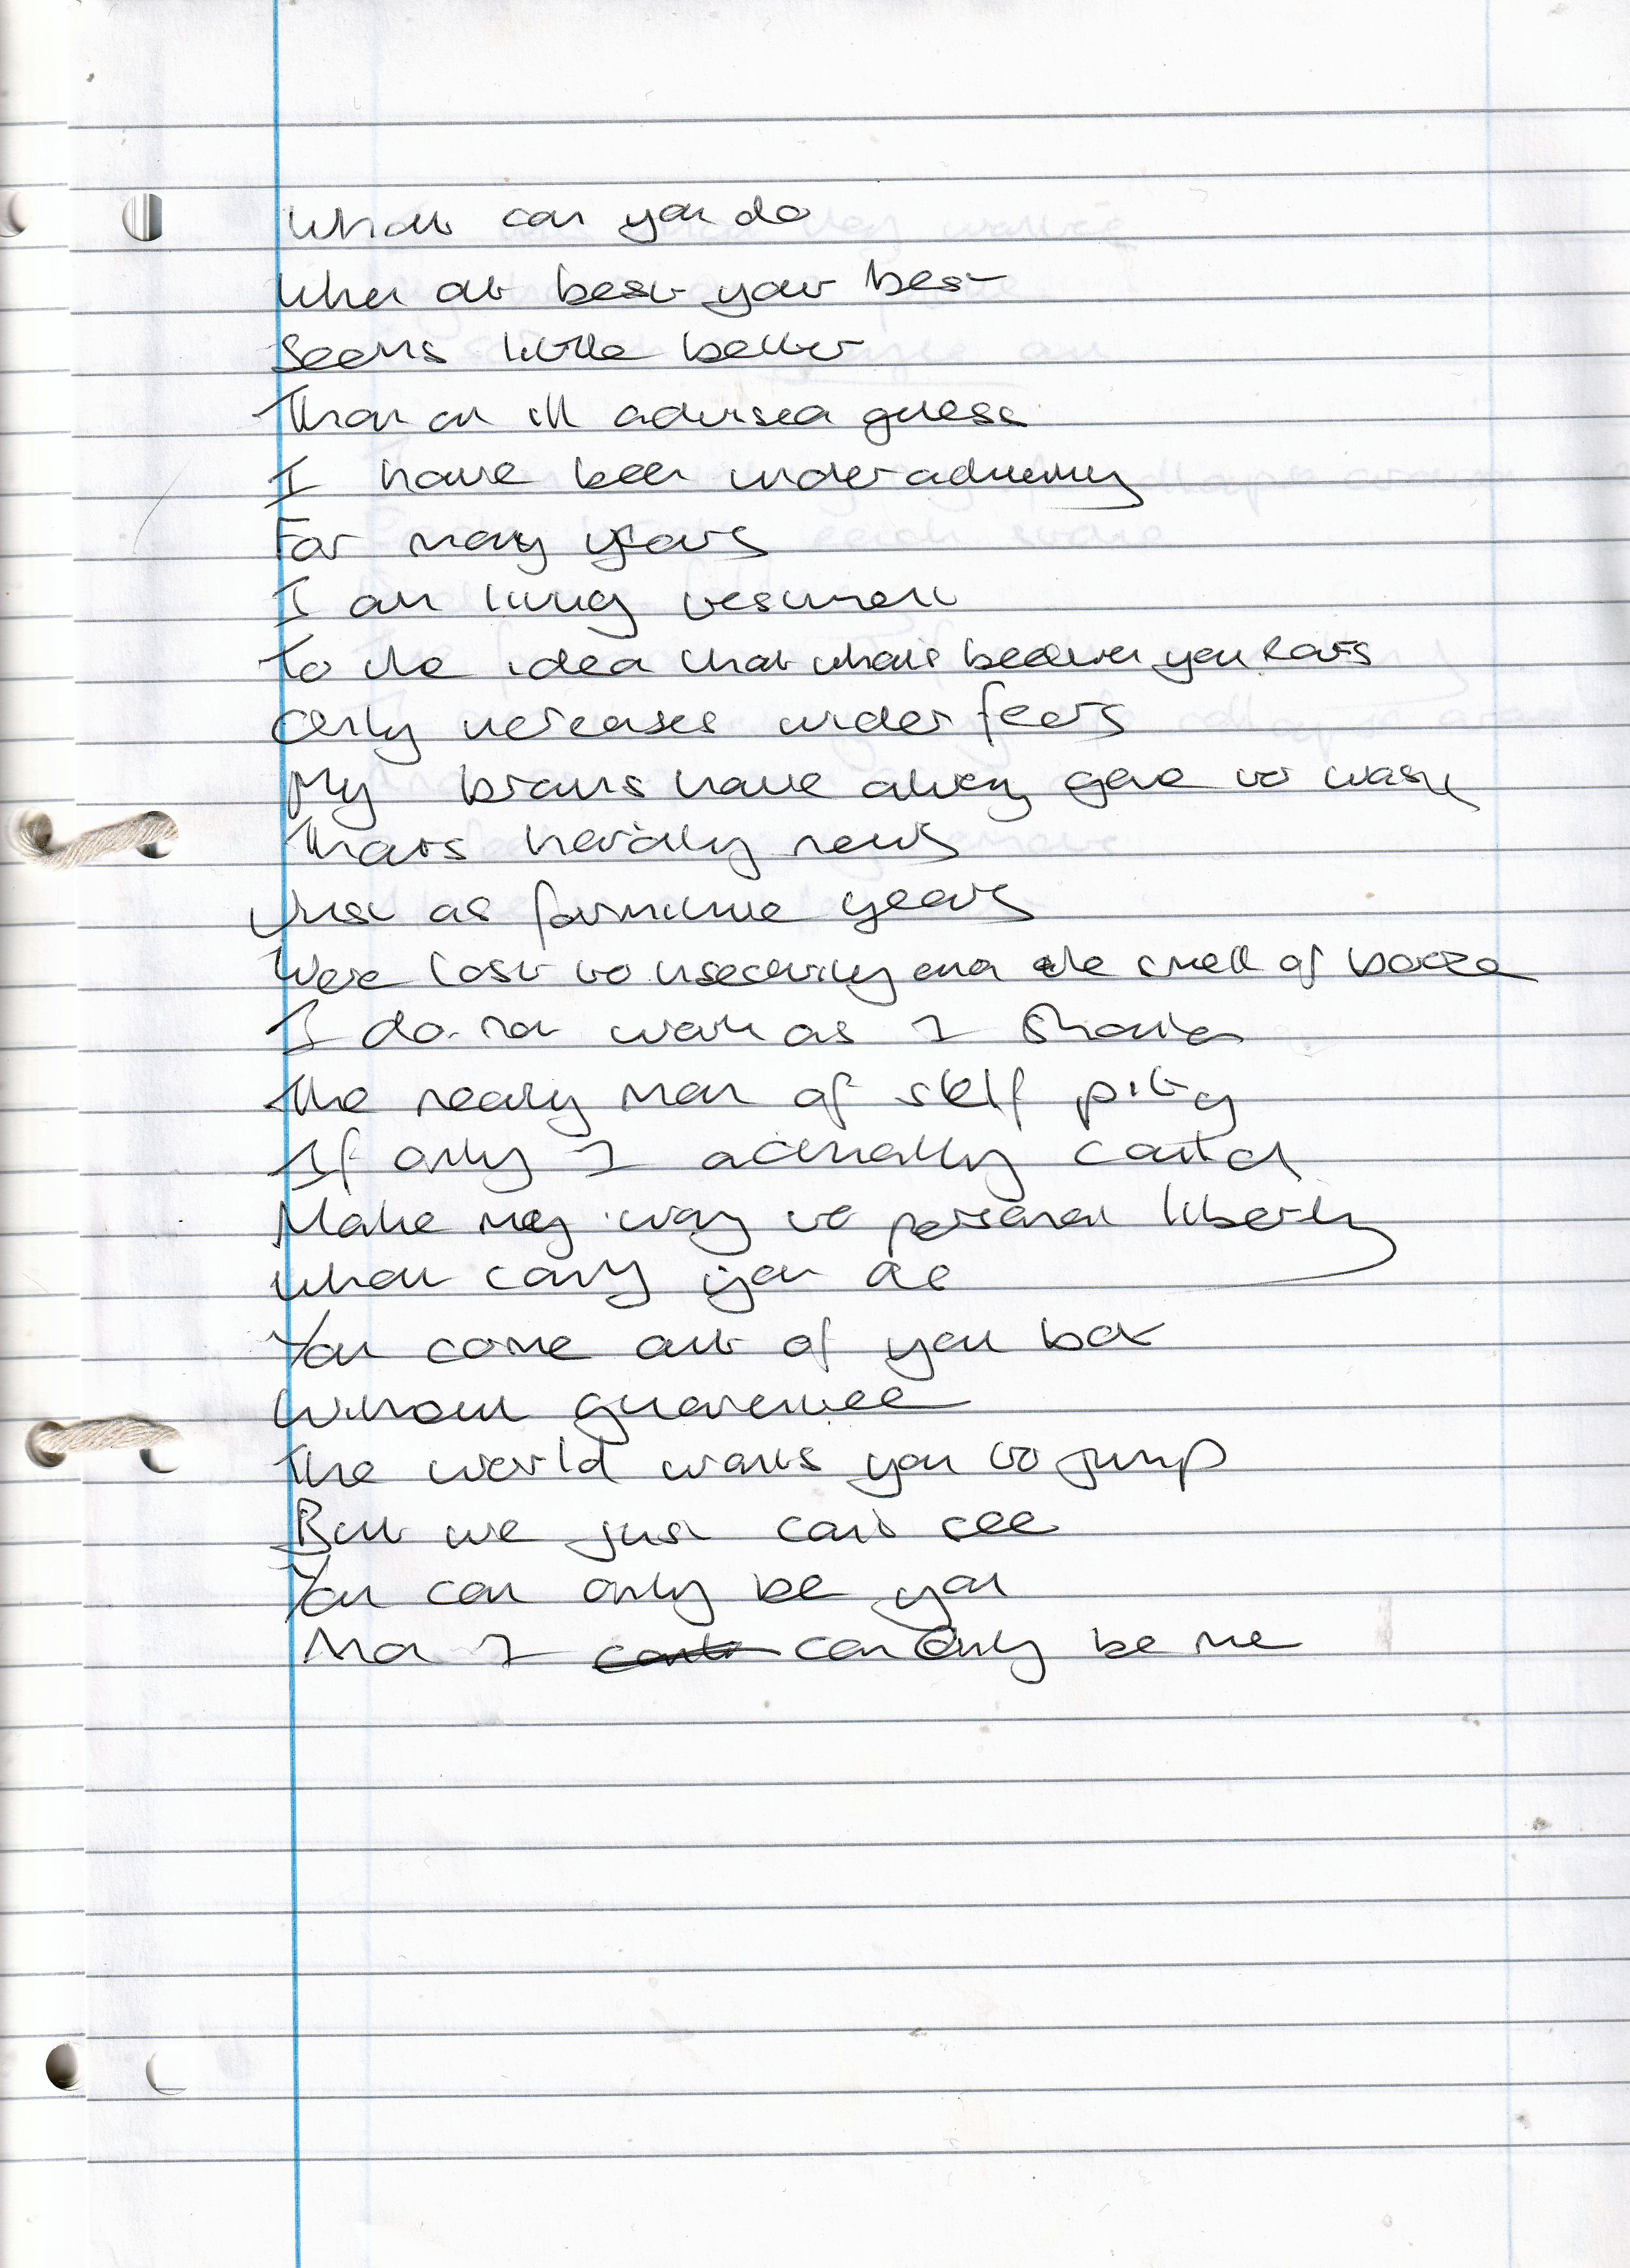 What can you do
When at best your best
Seems little better
Than an ill advised guess
I have been underachieving
For many years
I am living testiment
To the idea that what's between you ears
Only increases under fears
My brains have always gone to waste
Thats hardly news
Just as formitive years
Were lost to insecurity and the smell of booze
I do not work as I should
The ready man of self pity
If only I actually could
Make my way to personal liberty
What can you do
You come out of you box
Without guarentee
The world wants you to jump
But we just can't see
You can only be you
And I can only be me